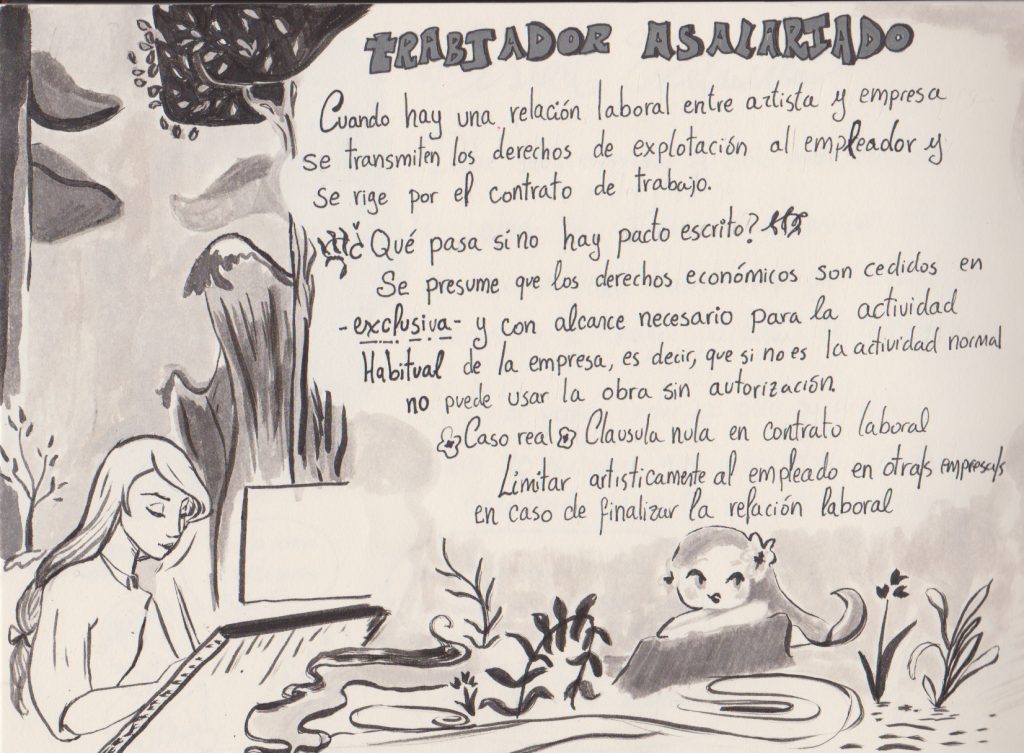 TRABJADOR ASALARIADO
Cuando hay una relación laboral entre artista y empresa
se transmiten los derechos de explotación al empleador y
se rige por el contrato de trabajo.
¿Qué pasa si no hay pacto escrito?
Se presume que los derechos económicos son cedidos en
-exclusiva- y con alcance necesario para la actividad
Habitual de la empresa, es decir, que si no es la actividad normal
no puede usar la obra sin autorización.
Caso real Clausula nula en contrato laboral
Limitar artisticamente al empleado en otra/s empresa/s
en caso de finalizar la relación laboral